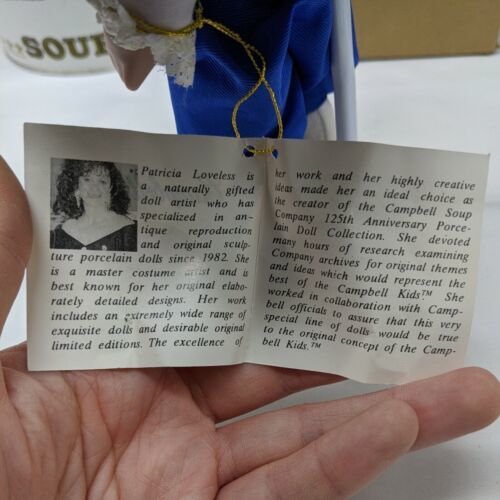 SOUP
Patricia Loveless is
a naturally gifted
doll artist who has
specialized in an-
tique reproduction
and original sculp-
ture porcelain dolls since 1982. She
is a master costume artist and is
best known for her original elabo-
rately detailed designs. Her work
includes an extremely wide range of
exquisite dolls and desirable original
limited editions. The excellence of
her work and her highly creative
ideas made her an ideal choice as
the creator of the Campbell Soup
Company 125th Anniversary Porce-
lain Doll Collection. She devoted
many hours of research examining
Company archives for original themes
and ideas which would represent the
best of the Campbell Kids™ She
worked in collaboration with Camp-
bell officials to assure that this very
special line of dolls would be true
to the original concept of the Camp-
bell Kids.™